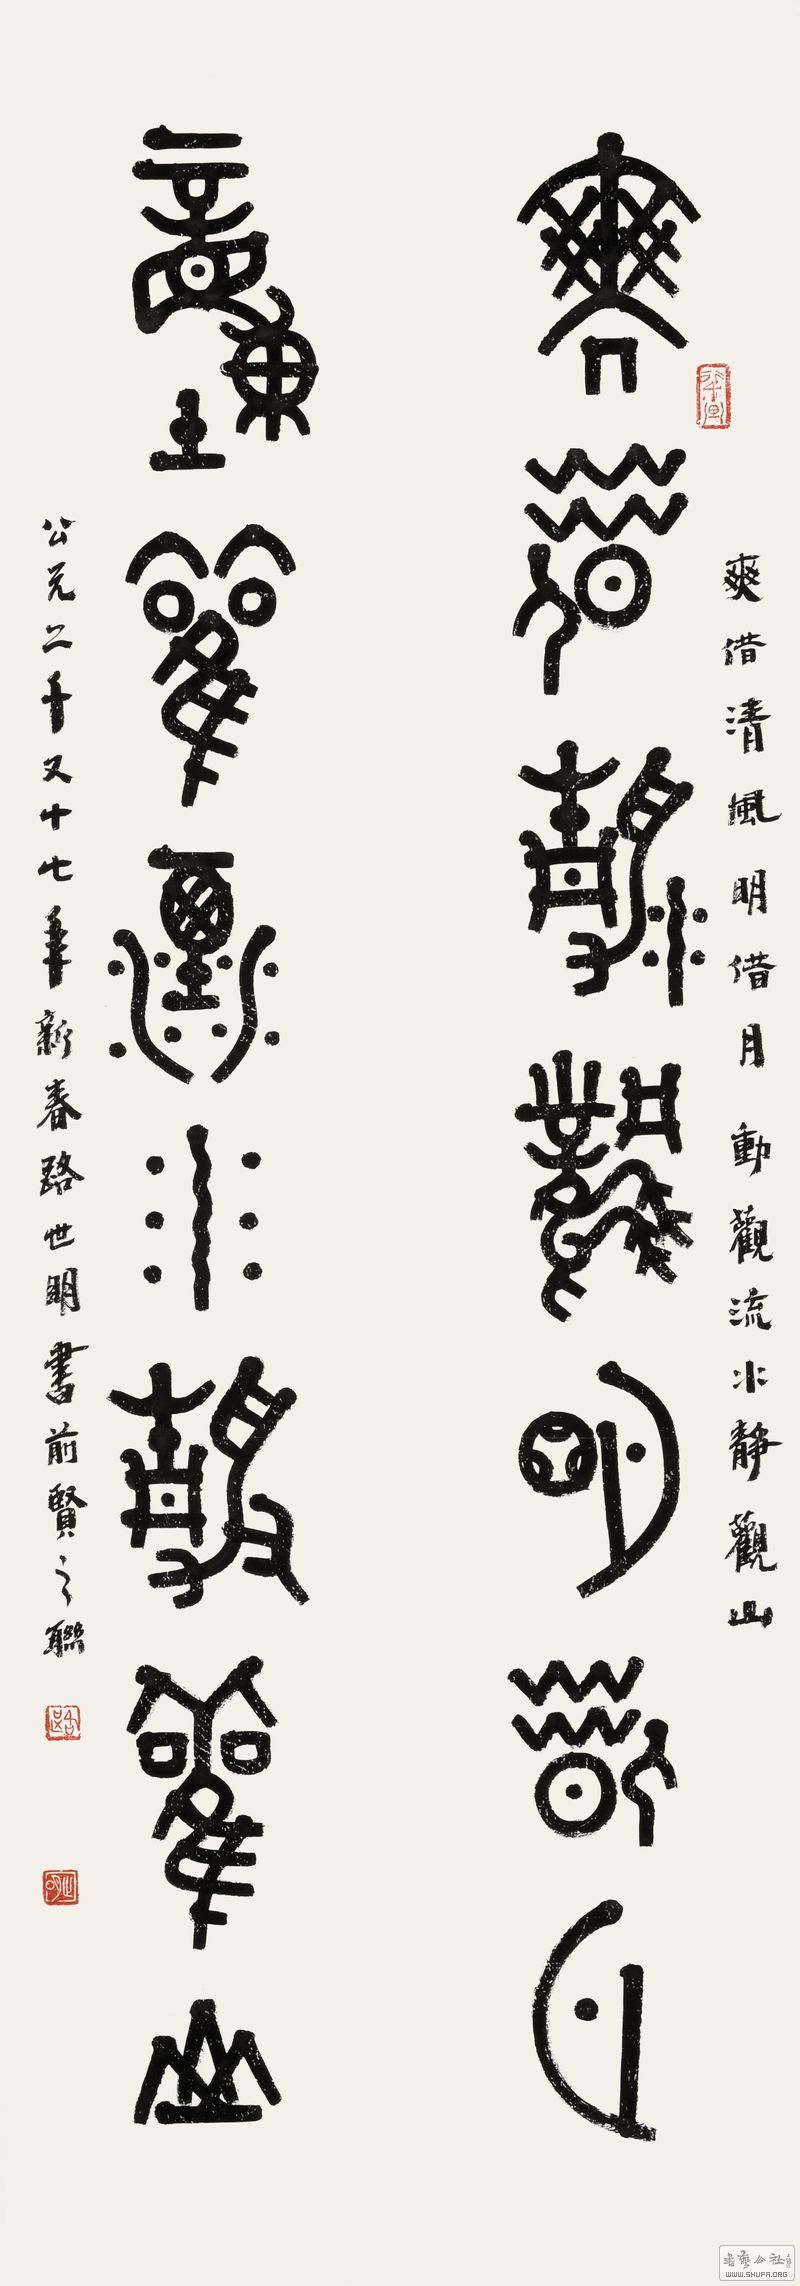 爽借清風明借月
動觀流水靜觀山
爽借清風明借月 動觀流水靜觀山
公元二千又十七年新春路世明書前賢之聯
路
世明
書藝公社
WWW.SHUFA.ORG